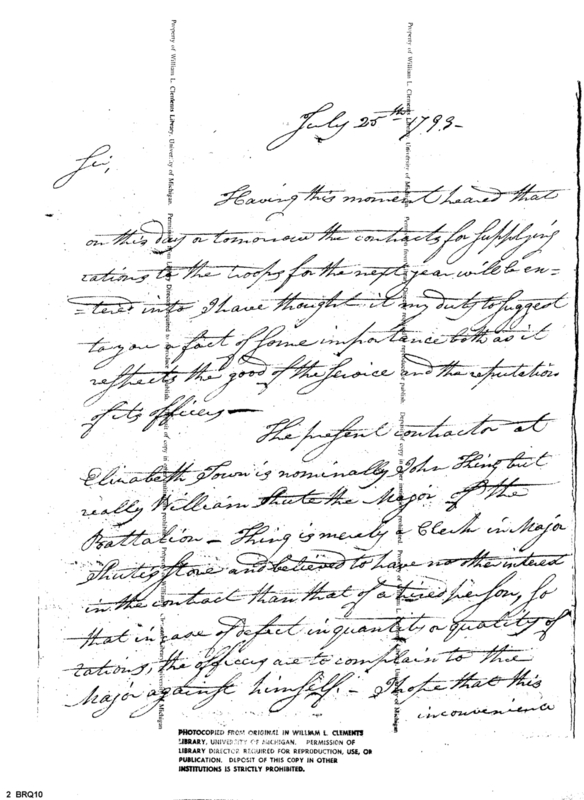 July 25th 1793-
Sir,
Having this moment heard that
on this day or tomorrow the contracts for supplying
rations to the troops for the next year will be en=
=tered into I have thought it my duty to suggest
to you a fact of some importance both as it
respects the good of the service and the reputation
of its officers —
The present contractor at
Elizabeth Town is nominally John Thing but
really William Shute the Major of the
Battalion — Thing is merely a Clerk in Major
Shute's store and believed to have no other interest
in the contract than that of a hired person, so
that in case of defect in quantity or quality of
rations, the officers are to complain to the
Major against himself. — I hope that this
inconvenience
PHOTOCOPIED FROM ORIGINAL IN WILLIAM L. CLEMENTS
LIBRARY, UNIVERSITY OF MICHIGAN. PERMISSION OF
LIBRARY DIRECTOR REQUIRED FOR REPRODUCTION, USE, OR
PUBLICATION. DEPOSIT OF THIS COPY IN OTHER
INSTITUTIONS IS STRICTLY PROHIBITED.
2 BRQ10
Property of William L. Clements Library, University of Michigan.
Property of William L. Clements Library, University of Michigan.